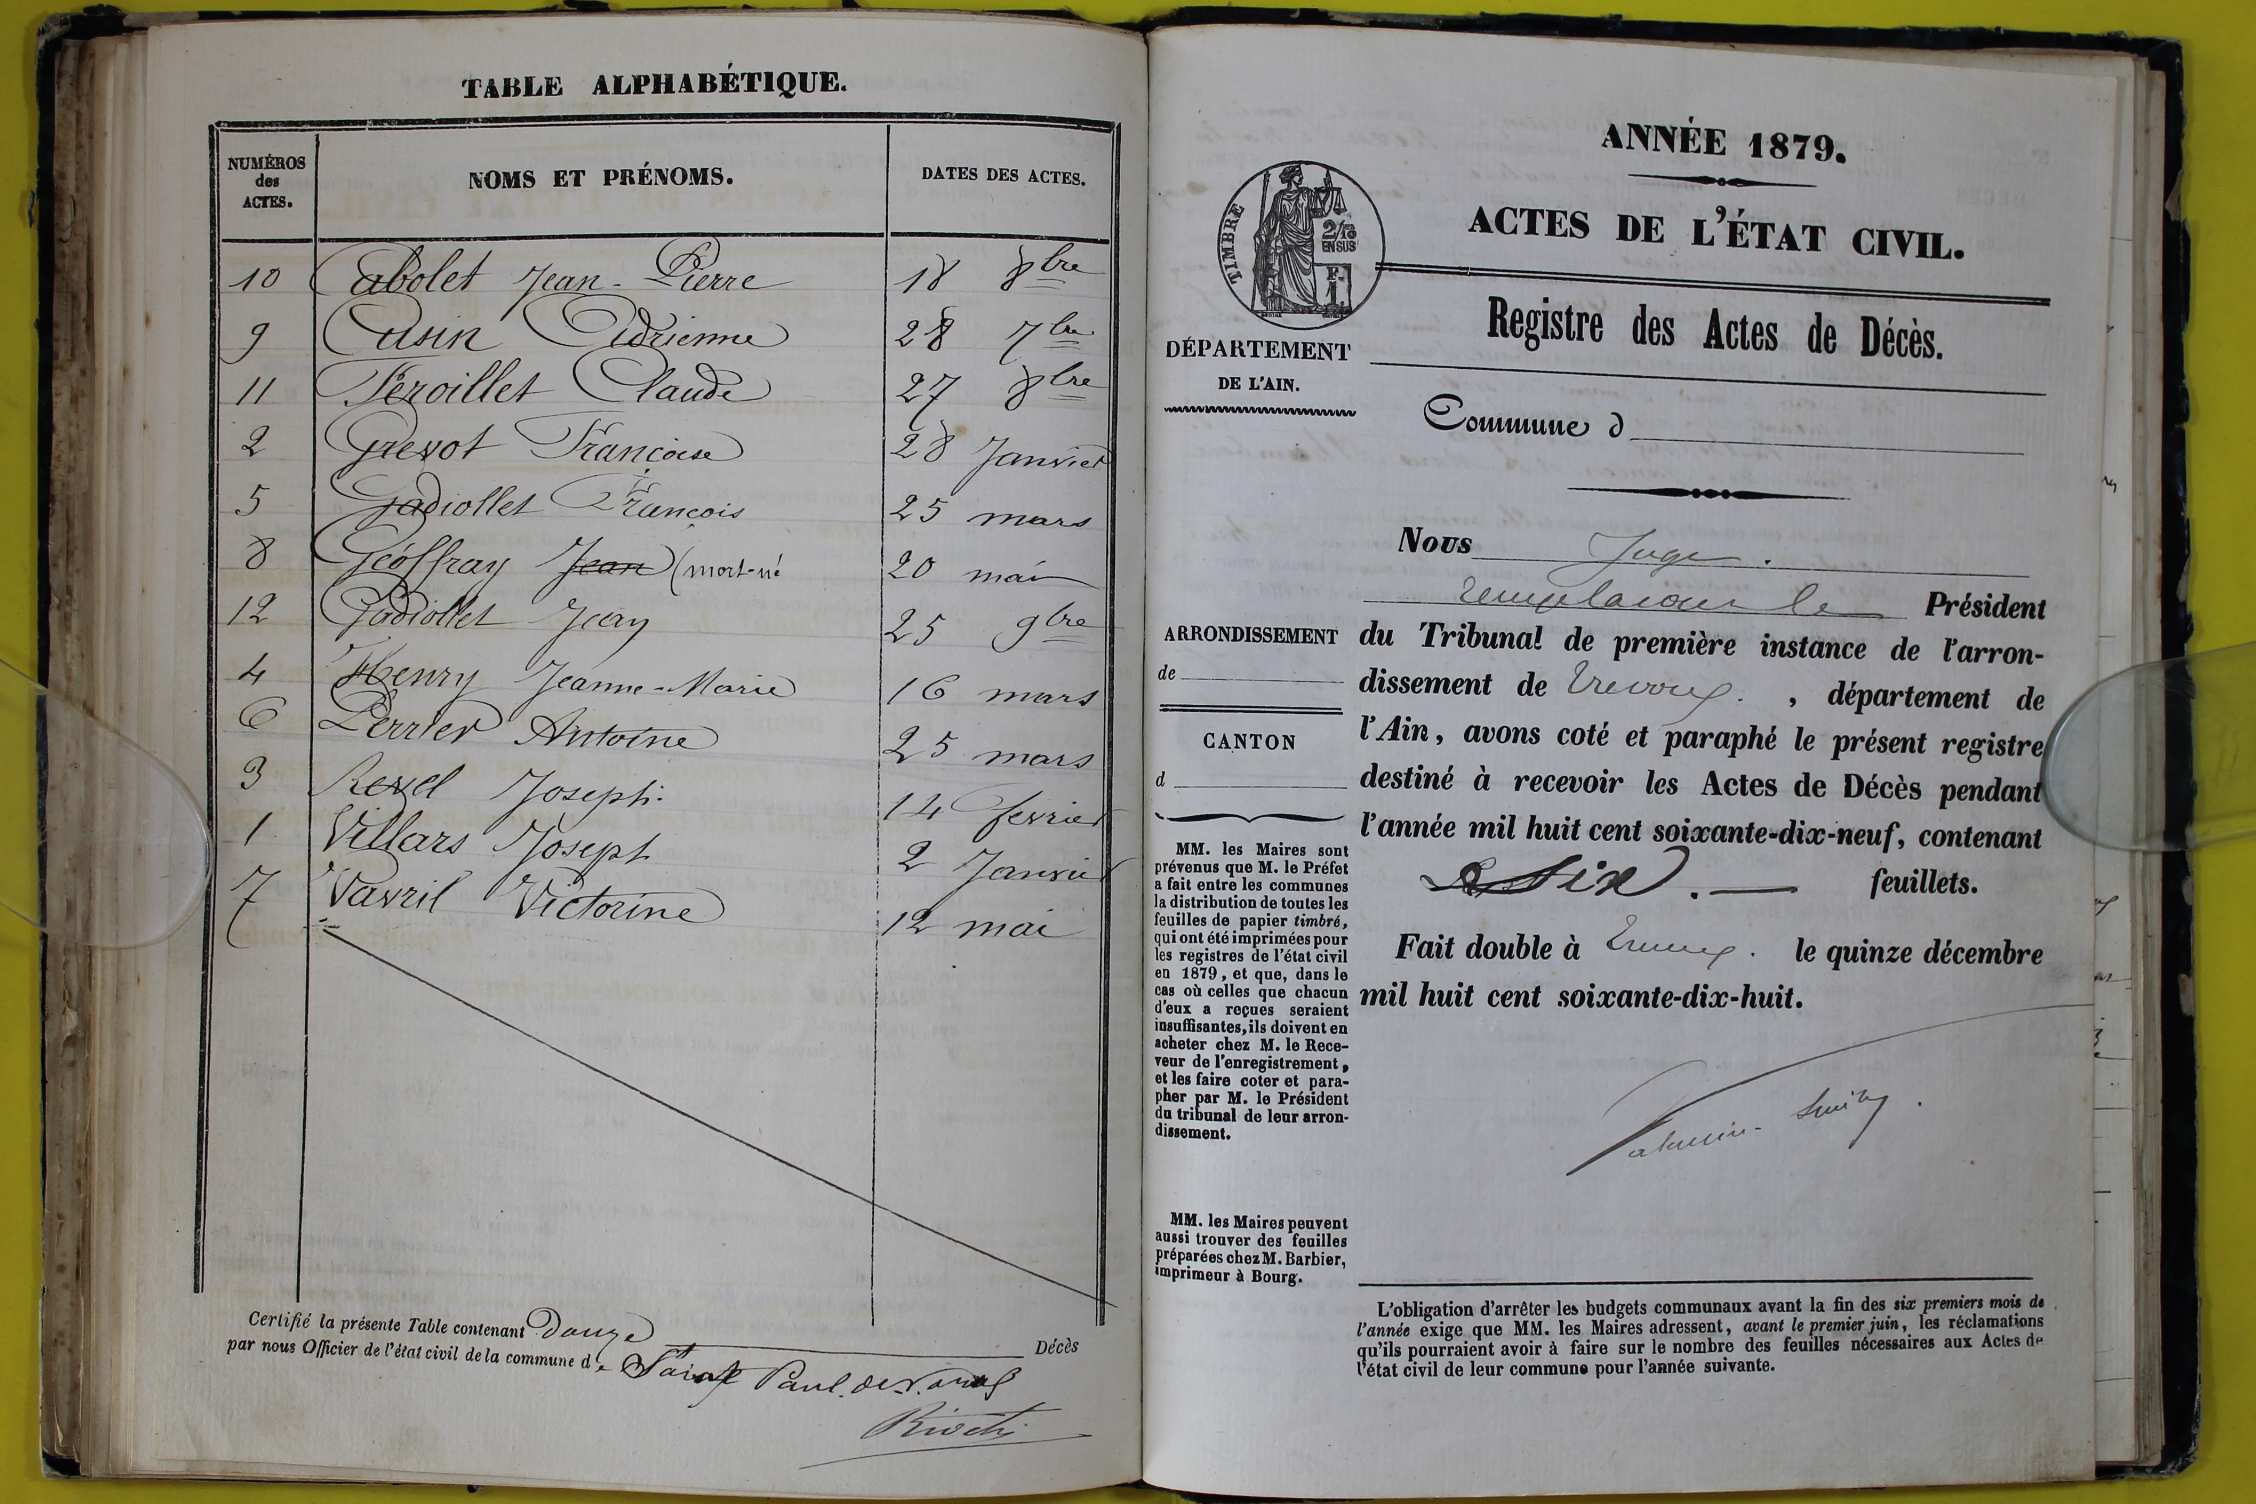 TABLE ALPHABÉTIQUE.
NUMÉROS des ACTES. NOMS ET PRÉNOMS. DATES DES ACTES.
10 Cabolet Jean-Pierre 18 8bre
9 Cusin Adrienne 28 7bre
11 Feroillet Claude 27 8bre
2 Grevot Françoise 28 Janvier
5 Gadiollet François 25 mars
8 Géoffray Jean (mort-né 20 mai
12 Gadiollet Jean 25 9bre
4 Henry Jeanne-Marie 16 mars
6 Perrier Antoine 25 mars
3 Revel Joseph 14 fevrier
1 Villars Joseph 2 Janvier
7 Vavril Victorine 12 mai
Certifié la présente Table contenant Douze Décès
par nous Officier de l'état civil de la commune de Saint Paul de
ANNÉE 1879.
ACTES DE L'ÉTAT CIVIL.
TIMBRE
2/10
EN SUS
F.
1.
Registre des Actes de Décès.
DÉPARTEMENT
DE L'AIN.
Commune d
Nous Juge.
remplaçant le Président
ARRONDISSEMENT
de
du Tribunal de première instance de l'arron-
dissement de Trevoux. , département de
l'Ain, avons coté et paraphé le présent registre
destiné à recevoir les Actes de Décès pendant
l'année mil huit cent soixante-dix-neuf, contenant
Six. — feuillets.
Fait double à Trevoux. le quinze décembre
mil huit cent soixante-dix-huit.
CANTON
d
MM. les Maires sont
prévenus que M. le Préfet
a fait entre les communes
la distribution de toutes les
feuilles de papier timbré,
qui ont été imprimées pour
les registres de l'état civil
en 1879, et que, dans le
cas où celles que chacun
d'eux a reçues seraient
insuffisantes, ils doivent en
acheter chez M. le Rece-
veur de l'enregistrement,
et les faire coter et para-
pher par M. le Président
du tribunal de leur arron-
dissement.
MM. les Maires peuvent
aussi trouver des feuilles
préparées chez M. Barbier,
imprimeur à Bourg.
L'obligation d'arrêter les budgets communaux avant la fin des six premiers mois de
l'année exige que MM. les Maires adressent, avant le premier juin, les réclamations
qu'ils pourraient avoir à faire sur le nombre des feuilles nécessaires aux Actes de
l'état civil de leur commune pour l'année suivante.